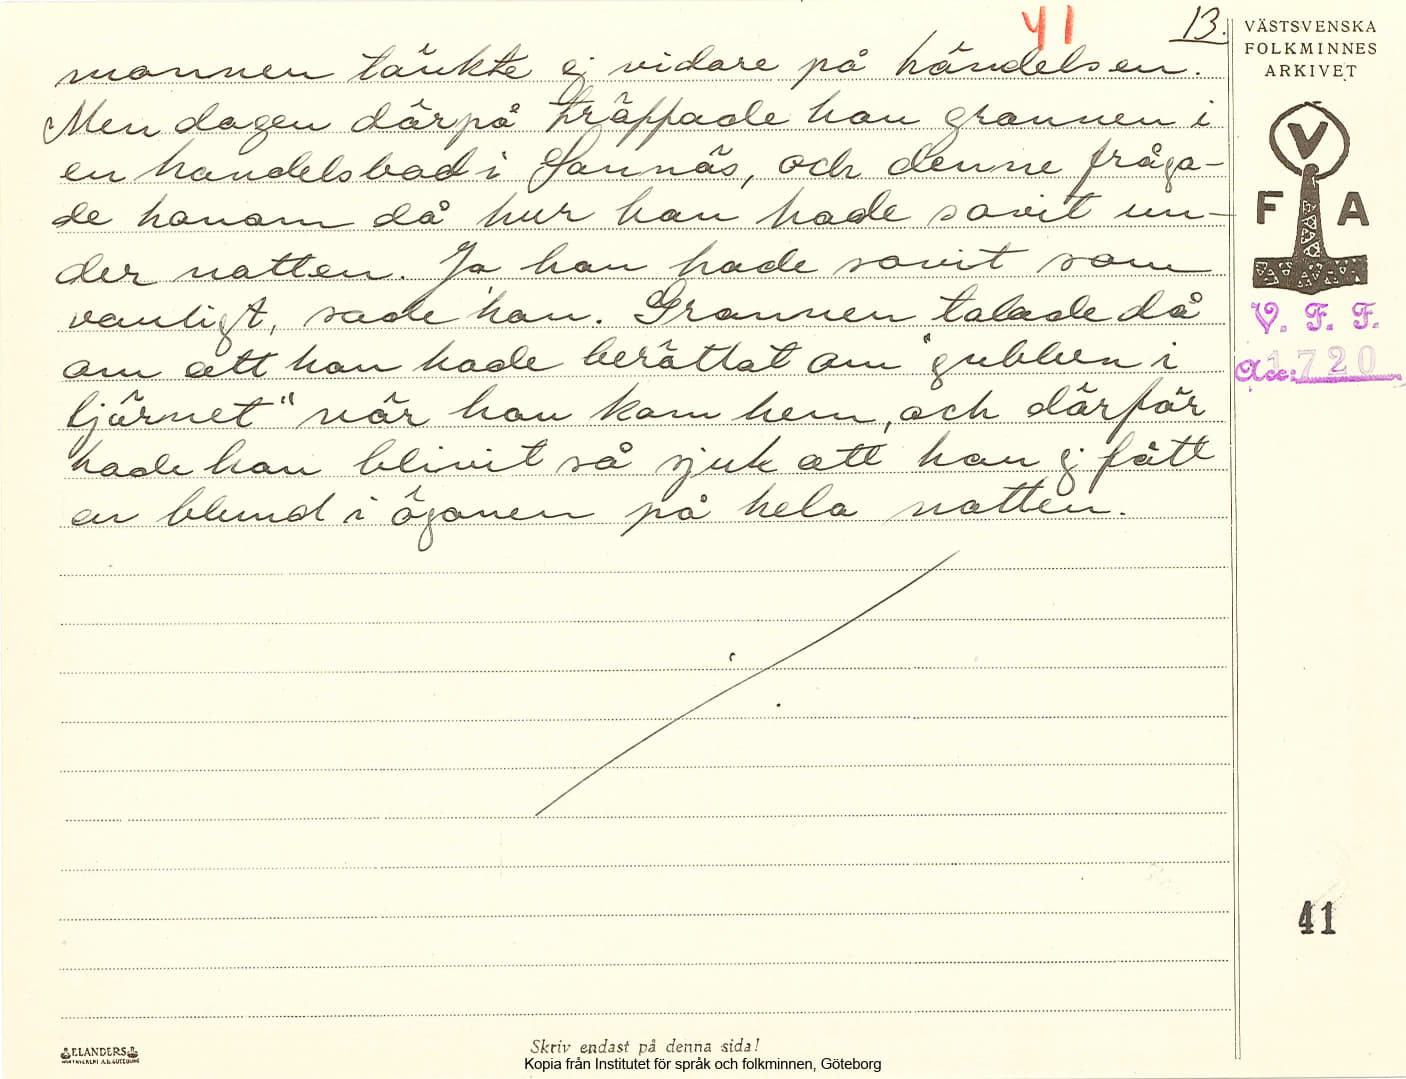 41
13.
VÄSTSVENSKA
FOLKMINNES
ARKIVET
mannen tänkte ej vidare på händelsen.
Men dagen därpå träffade han grannen i
en handelsbod i Sannäs, och denne fråga-
de honom då hur han hade sovit un-
der natten. Ja han hade sovit som
vanligt, sade han. Grannen talade då
om att han hade berättat om "gubben i
tjärnet" när han kom hem, och därför
hade han blivit så sjuk att han ej fått
en blund i ögonen på hela natten.
V
F A
V. F. F.
Acc: 1720
41
ELANDERS
Skriv endast på denna sida!
Kopia från Institutet för språk och folkminnen, Göteborg